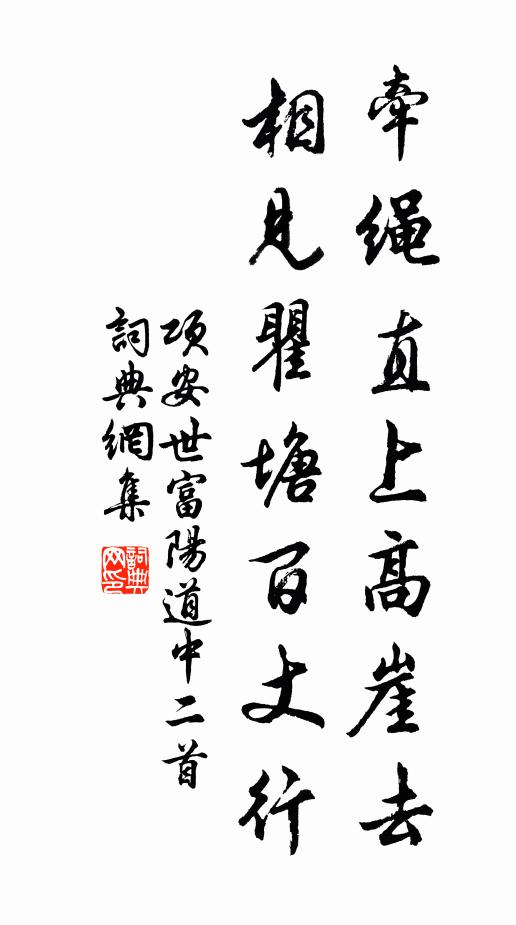 牽繩直上高崖去
相見瞿塘百丈行
項安世富陽道中二首
詞典網集
詞典網印